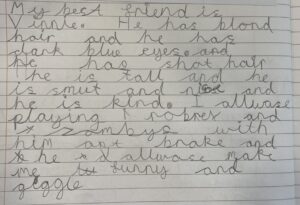 My best friend is
Vinnie. He has blond
hair and he has
dark blue eyes. and
He has shot hair
he is tall and he
is smut and nise and
he is kind. I allwase
playing robres and
zombys with
him ant brake and
he allwase make
me funny and
geggle